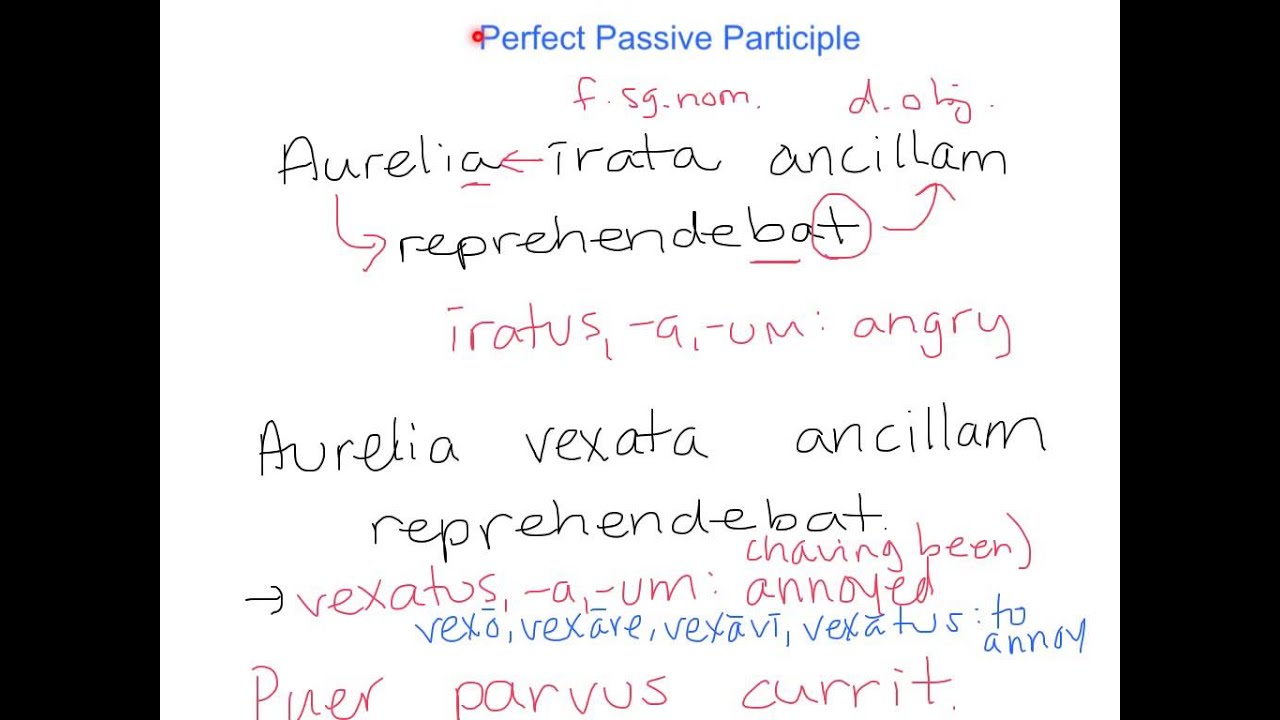 Perfect Passive Participle
f. sg. nom. d. obj.
Aurelia ← īrata ancillam
reprehendebat
īratus, -a, -um: angry
Aurelia vexata ancillam
reprehendebat.
(having been)
→ vexatus, -a, -um: annoyed
vexō, vexāre, vexāvī, vexātus: to
annoy
Puer parvus currit.